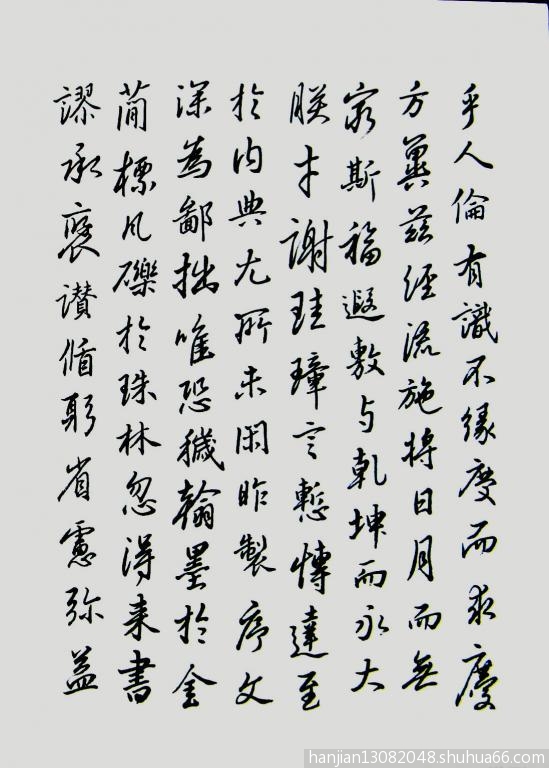 乎人倫有識不緣慶而求慶
方冀茲經流施將日月而無
窮斯福遐敷与乾坤而永大
朕才謝珪璋言慙博達至
於内典尤所未閑昨製序文
深為鄙拙唯恐穢翰墨於金
簡標瓦礫於珠林忽得来書
謬承褒讃循躬省慮弥益
hanjian13082048.shuhua66.com